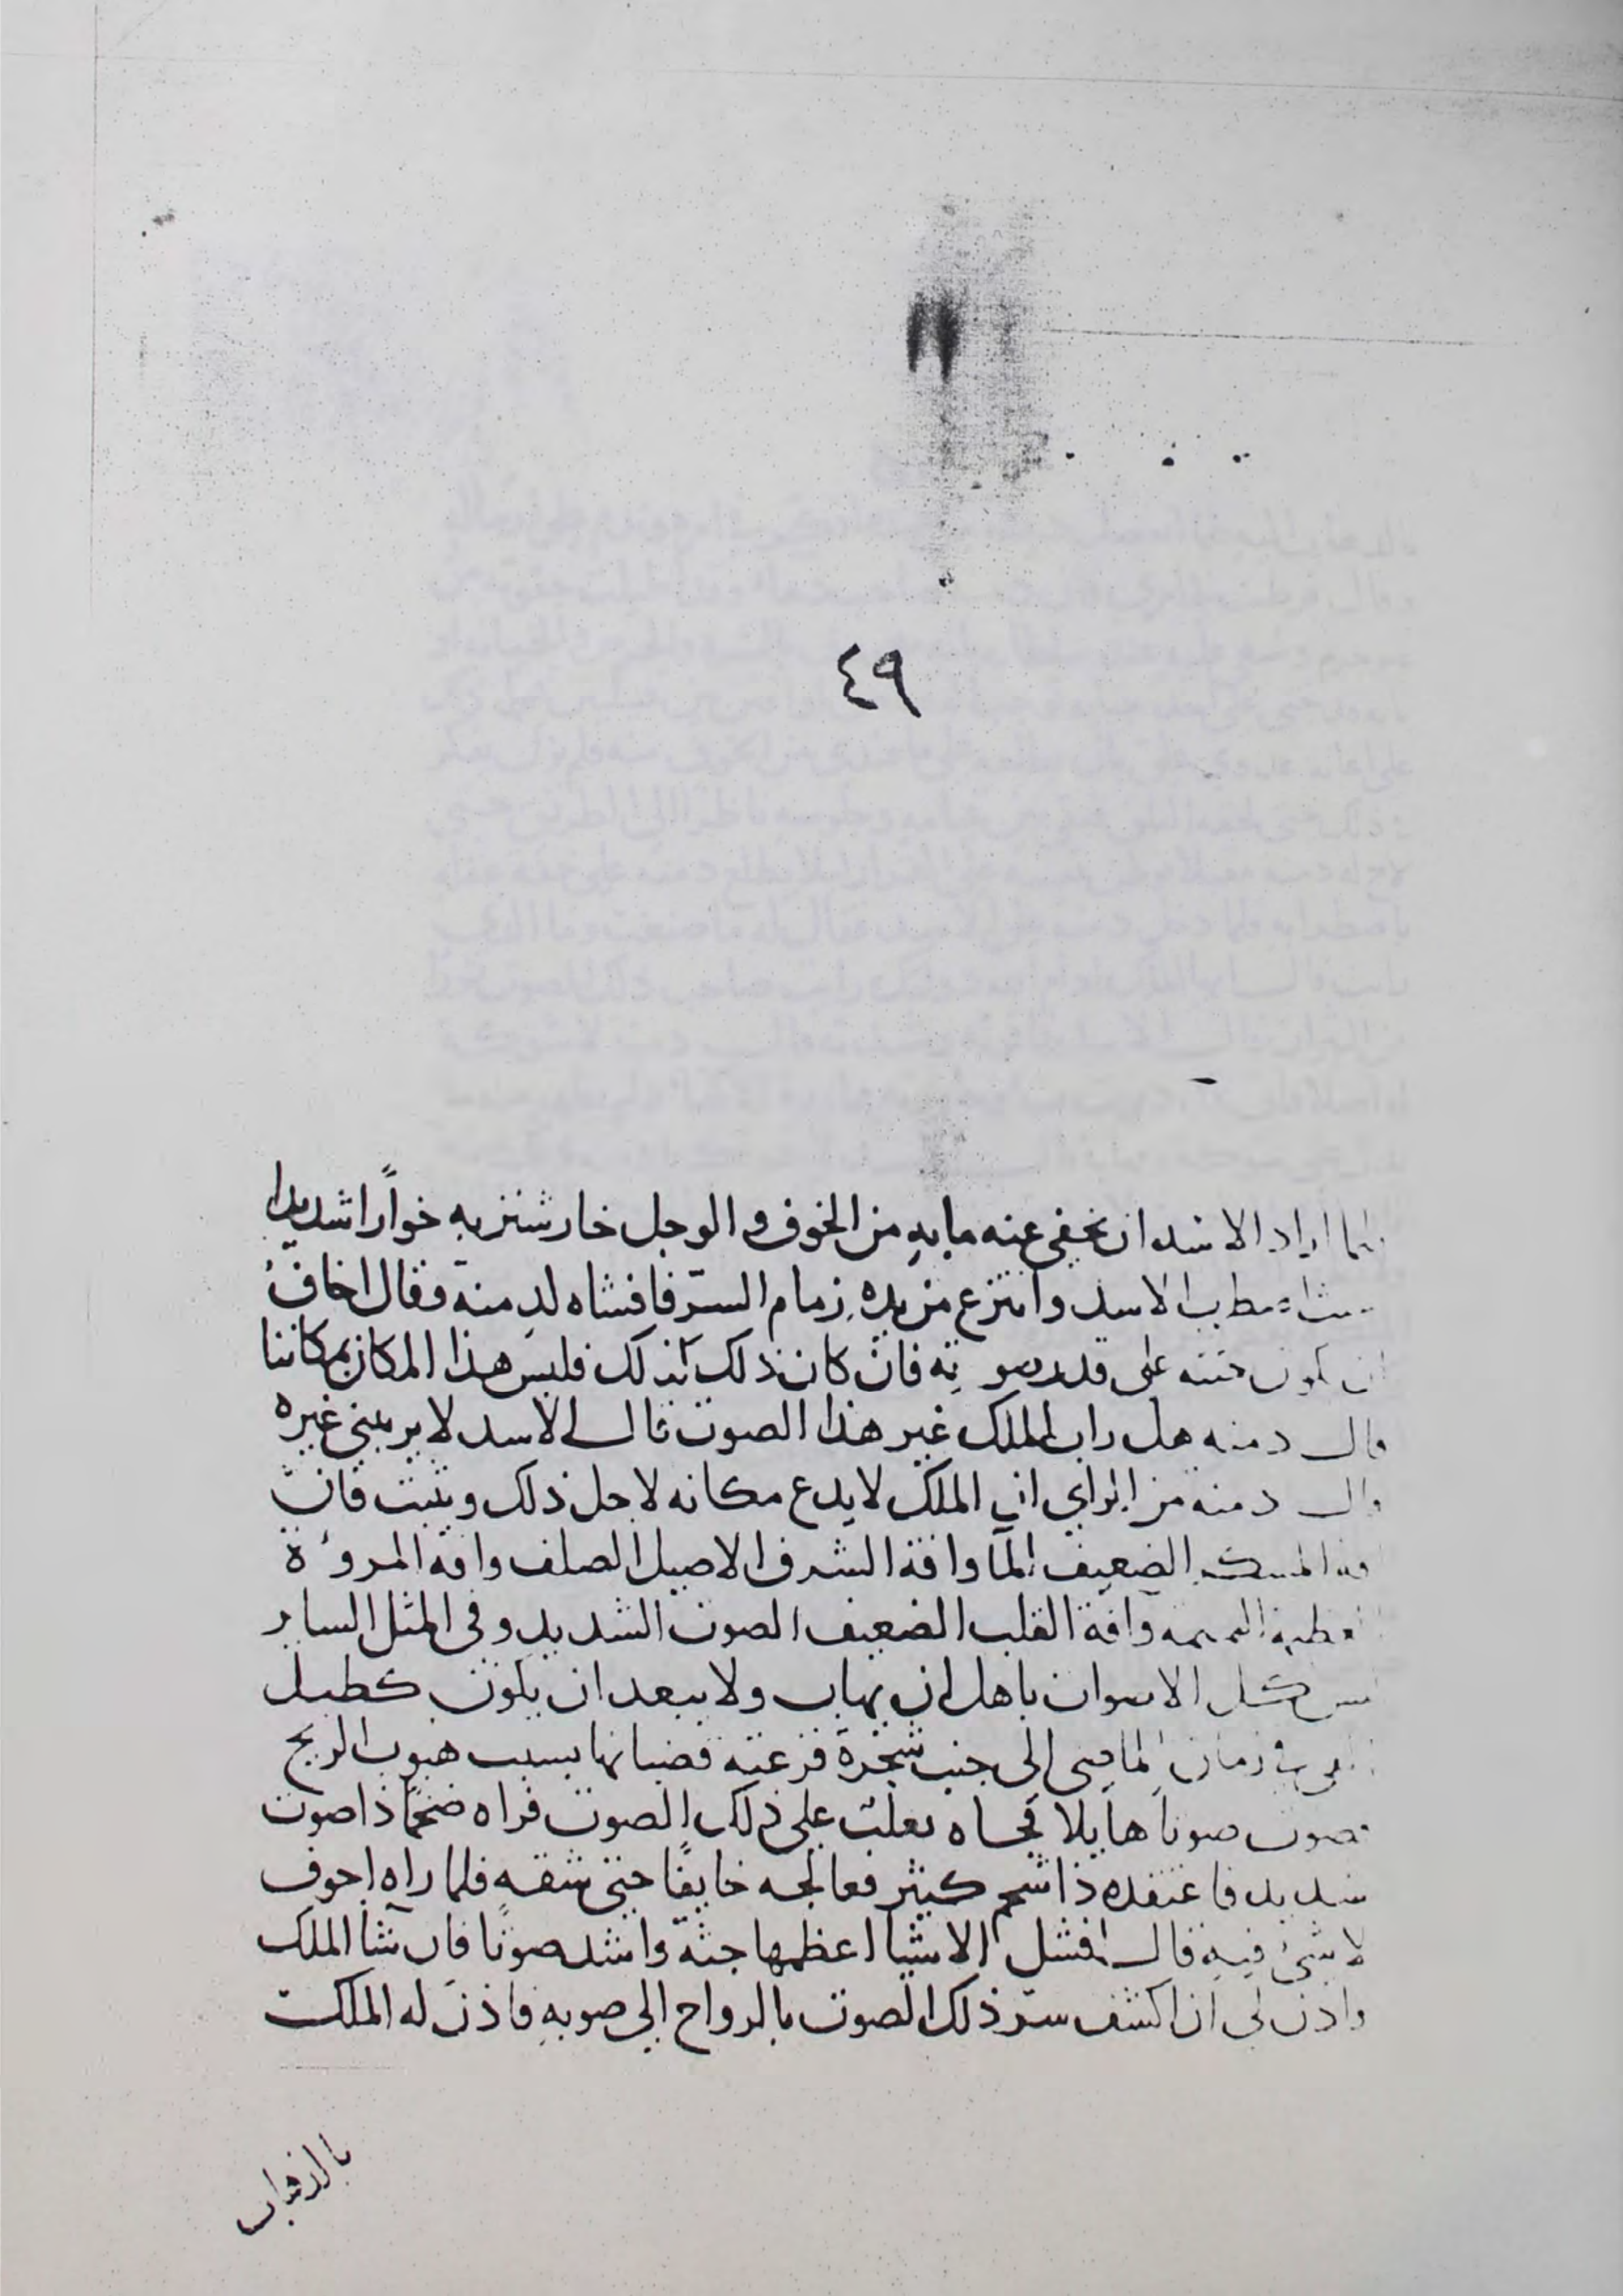 ٤٩
فلما اراد الاسد ان يخفي عنه ما به من الخوف والوجل خار شنزبه خواراً شديدا
الاسد وانتزع من يده زمام السرّ فافشاه لدمنة وقال اخاف
ان تكون جثته على قدر صوته فان كان ذلك كذلك فليس هذا المكان بمكاننا
قال دمنه هل راب الملك غير هذا الصوت قال الاسد لا يريبني غيره
قال دمنه من الراي ان الملك لا يدع مكانه لاجل ذلك ويثبت فان
الضعيف الما وافة الشرف الاصيل الصلف وافة المروءة
العظيمة النميمه وآفة القلب الضعيف الصوت الشديد وفي المثل الساير
ليس كل الاصوات باهل ان يهاب ولا يبعد ان يكون كطبل
في زمان الماضى الى جنب شجرة قرعته قضبانها بسبب هبوب الريح
فصوت صوتاً هايلا فجاه ثعلب على ذلك الصوت فراه ضخماً ذا صوت
شديد فاعتقده ذا شحم كثير فعالجه خايفًا حتى شقه فلما راه اجوف
لا شئ فيه قال افشل الاشيا اعظمها جثة واشد صوتًا فان شا الملك
واذن لي ان اكشف ستر ذلك الصوت بالرواح الى صوبه فاذن له الملك
بالذهاب